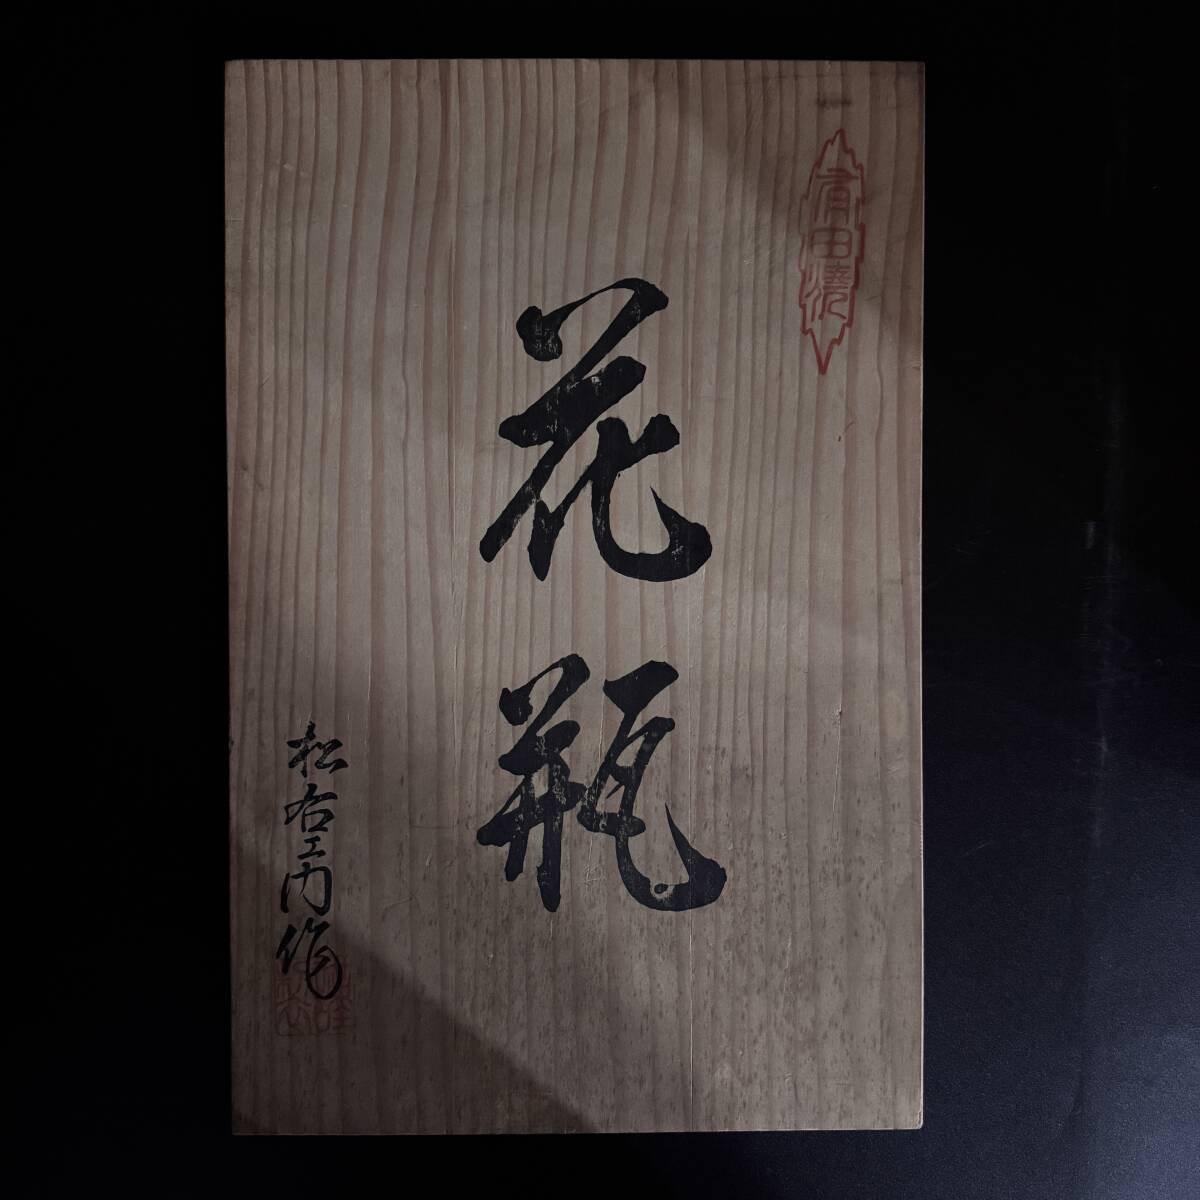 有田焼
花瓶
松右エ門作